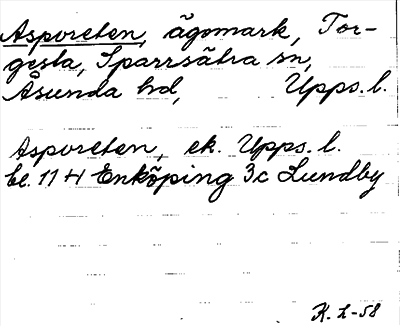 Asporeten, ägomark, Tor-
gesta, Sparrsätra sn,
Åsunda hd, Upps. l.
Asporeten, ek. Upps. l.
bl. 11 H Enköping 3c Lundby
K. L-58